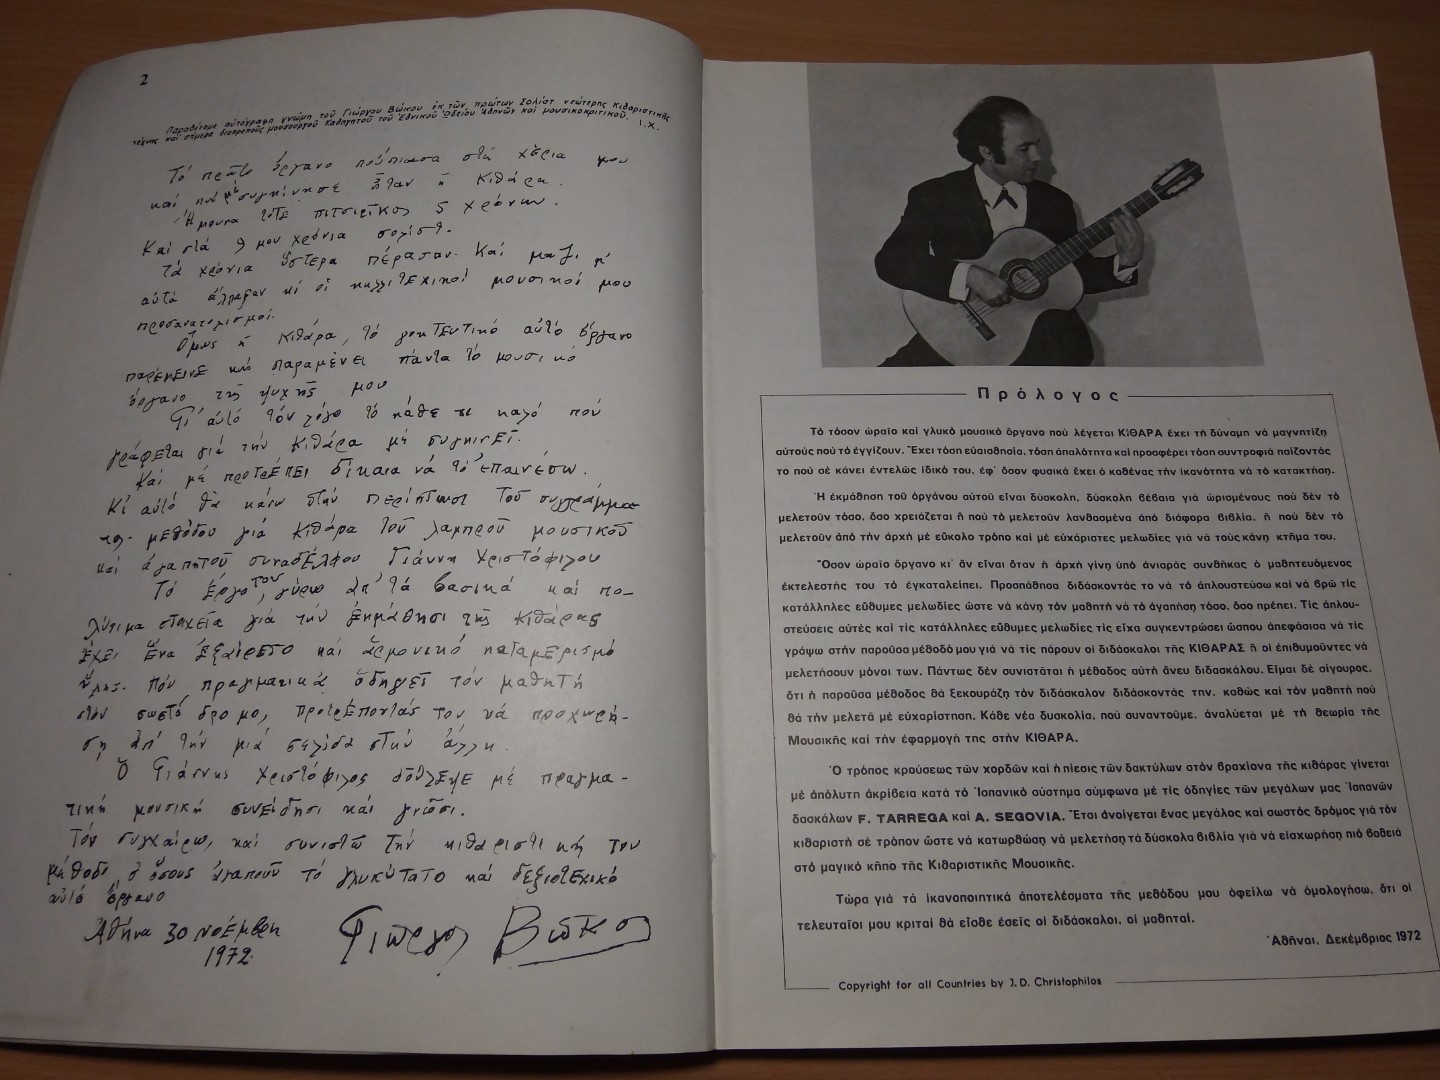 2
Παραθέτομε αὐτόγραφη γνώμη τοῦ Γιώργου Βώκου ἐκ τῶν πρώτων Σολίστ νεώτερης Κιθαριστικῆς
τέχνης καί σήμερα διαπρεποῦς μουσουργοῦ Καθηγητοῦ τοῦ Ἐθνικοῦ Ὠδείου Ἀθηνῶν καί μουσικοκριτικοῦ. Ι.Χ.
Τό πρῶτο ὄργανο πούπιασα στά χέρια μου
καί πού μέ συγκίνησε ἦταν ἡ Κιθάρα.
Ἤμουνα τότε πιτσιρῖκος 5 χρόνων.
Καί στά 9 μου χρόνια σολίστ.
Τά χρόνια ὕστερα πέρασαν. Καί μαζί μ'
αὐτά ἄλλαξαν κι οἱ καλλιτεχικοί μουσικοί μου
προσανατολισμοί.
Ὅμως ἡ Κιθάρα, τό γοητευτικό αὐτό ὄργανο
παρέμεινε καί παραμένει πάντα τό μουσικό
ὄργανο τῆς ψυχῆς μου
Γι' αὐτό τόν λόγο τό κάθε τι καλό πού
γράφεται γιά τήν Κιθάρα μέ συγκινεῖ.
Καί μέ προτρέπει δίκαια νά τό ἐπαινέσω.
Κι αὐτό θά κάνω στήν περίπτωσι τοῦ συγγράμμα-
τος- μεθόδου γιά Κιθάρα τοῦ λαμπροῦ μουσικοῦ
καί ἀγαπητοῦ συναδέλφου Γιάννη Χριστόφιλου
Τό ἔργο του, γύρω ἀπ' τά βασικά καί πο-
λύτιμα στοιχεῖα γιά τήν ἐκμάθησι τῆς Κιθάρας
ἔχει ἕνα ἐξαίρετο καί ἁρμονικό καταμερισμό
ὕλης. Πού πραγματικά ὁδηγεῖ τόν μαθητή
στόν σωστό δρόμο, προτρέποντάς τον νά προχωρή-
ση ἀπ' τήν μιά σελίδα στήν ἄλλη.
Ὁ Γιάννης Χριστόφιλος δούλεψε μέ πραγμα-
τική μουσική συνείδησι καί γνῶσι.
Τόν συγχαίρω, καί συνιστῶ τήν κιθαριστική του
μέθοδο σ' ὅσους ἀγαποῦν τό γλυκύτατο καί δεξιοτεχικό
αὐτό ὄργανο
Ἀθήνα 30 Νοέμβρη
1972.
Γιῶργος Βῶκος
Πρόλογος
Τό τόσον ὡραῖο καί γλυκό μουσικό ὄργανο πού λέγεται ΚΙΘΑΡΑ ἔχει τή δύναμη νά μαγνητίζη
αὐτούς πού τό ἐγγίζουν. Ἔχει τόση εὐαισθησία, τόση ἀπαλότητα καί προσφέρει τόση συντροφιά παίζοντάς
το πού σέ κάνει ἐντελῶς ἰδικό του, ἐφ' ὅσον φυσικά ἔχει ὁ καθένας τήν ἱκανότητα νά τό κατακτήση.
Ἡ ἐκμάθηση τοῦ ὀργάνου αὐτοῦ εἶναι δύσκολη, δύσκολη βέβαια γιά ὡρισμένους πού δέν τό
μελετοῦν τόσο, ὅσο χρειάζεται ἤ πού τό μελετοῦν λανθασμένα ἀπό διάφορα βιβλία, ἤ πού δέν τό
μελετοῦν ἀπό τήν ἀρχή μέ εὔκολο τρόπο καί μέ εὐχάριστες μελωδίες γιά νά τούς κάνη κτῆμα του.
Ὅσον ὡραῖο ὄργανο κι' ἄν εἶναι ὅταν ἡ ἀρχή γίνη ὑπό ἀνιαράς συνθήκας ὁ μαθητευόμενος
ἐκτελεστής του τό ἐγκαταλείπει. Προσπάθησα διδάσκοντας το νά τό ἁπλουστεύσω καί νά βρῶ τίς
κατάλληλες εὔθυμες μελωδίες ὥστε νά κάνη τόν μαθητή νά τό ἀγαπήση τόσο, ὅσο πρέπει. Τίς ἁπλου-
στεύσεις αὐτές καί τίς κατάλληλες εὔθυμες μελωδίες τίς εἶχα συγκεντρώσει ὥσπου ἀπεφάσισα νά τίς
γράψω στήν παροῦσα μέθοδό μου γιά νά τίς πάρουν οἱ διδάσκαλοι τῆς ΚΙΘΑΡΑΣ ἤ οἱ ἐπιθυμοῦντες νά
μελετήσουν μόνοι των. Πάντως δέν συνιστᾶται ἡ μέθοδος αὐτή ἄνευ διδασκάλου. Εἶμαι δέ σίγουρος,
ὅτι ἡ παροῦσα μέθοδος θά ξεκουράζη τόν διδάσκαλον διδάσκοντάς την, καθώς καί τόν μαθητή πού
θά τήν μελετᾶ μέ εὐχαρίστηση. Κάθε νέα δυσκολία, πού συναντοῦμε, ἀναλύεται μέ τή θεωρία τῆς
Μουσικῆς καί τήν ἐφαρμογή της στήν ΚΙΘΑΡΑ.
Ὁ τρόπος κρούσεως τῶν χορδῶν καί ἡ πίεσις τῶν δακτύλων στόν βραχίονα τῆς κιθάρας γίνεται
μέ ἀπόλυτη ἀκρίβεια κατά τό Ἰσπανικό σύστημα σύμφωνα μέ τίς ὁδηγίες τῶν μεγάλων μας Ἰσπανῶν
δασκάλων F. TARREGA καί A. SEGOVIA. Ἔτσι ἀνοίγεται ἕνας μεγάλος καί σωστός δρόμος γιά τόν
κιθαριστή σέ τρόπον ὥστε νά κατωρθώση νά μελετήση τά δύσκολα βιβλία γιά νά εἰσχωρήση πιό βαθειά
στό μαγικό κῆπο τῆς Κιθαριστικῆς Μουσικῆς.
Τώρα γιά τά ἱκανοποιητικά ἀποτελέσματα τῆς μεθόδου μου ὀφείλω νά ὁμολογήσω, ὅτι οἱ
τελευταῖοι μου κριταί θά εἶσθε ἐσεῖς οἱ διδάσκαλοι, οἱ μαθηταί.
Ἀθῆναι, Δεκέμβριος 1972
Copyright for all Countries by J. D. Christophilos